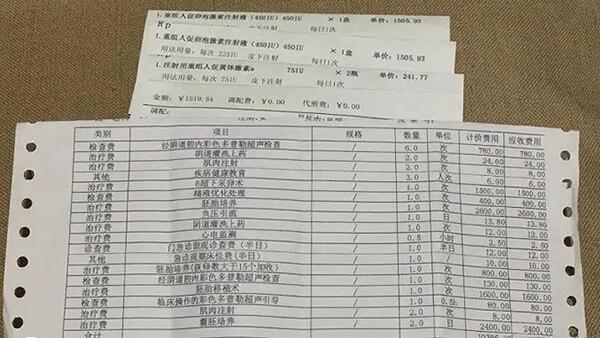 1.重组人促卵泡激素注射液（450IU）450IU × 1盒 单价：1505.93
Rp
每日1次
1.重组人促卵泡激素注射液（450IU）450IU × 1盒 单价：1505.93
用法用量：每次 225IU 皮下注射 每日1次
1.注射用重组人促黄体激素a 75IU × 2瓶 单价：241.77
用法用量：每次 75IU 皮下注射 每日1次
金额：￥1519.54 调配费：￥0.00 代煎费：￥0.00
调配：
类别 项目 规格 数量 单位 计价费用 应收费用
检查费 经阴道腔内彩色多普勒超声检查 / 6.0 次 780.00 780.00
治疗费 阴道灌洗上药 / 2.0 次 24.00 24.00
治疗费 肌肉注射 / 2.0 次 8.00 8.00
其他 疾病健康教育 / 3.0 人次 6.00 6.00
治疗费 B超下采卵术 / 1.0 次 1500.00 1500.00
检查费 精液优化处理 / 1.0 次 400.00 400.00
治疗费 胚胎培养 / 1.0 次 2600.00 2600.00
治疗费 负压引流 / 1.0 日 13.80 13.80
治疗费 阴道灌洗上药 / 1.0 次 12.00 12.00
治疗费 心电监测 / 0.5 小时 2.50 2.50
诊查费 门急诊留观诊查费（半日） / 1.0 半日 12.00 12.00
其他 急诊观察床位费（半日） / 1.0 10.00 10.00
治疗费 胚胎培养(获卵数大于15个加收) / 1.0 次 800.00 800.00
检查费 经阴道腔内彩色多普勒超声检查 / 1.0 次 130.00 130.00
治疗费 胚胎移植术 / 1.0 次 1600.00 1600.00
检查费 临床操作的彩色多普勒超声引导 / 1.0 0.5h 80.00 80.00
治疗费 肌肉注射 / 2.0 次 8.00 8.00
治疗费 囊胚培养 / 2.0 日 2400.00 2400.00
合计